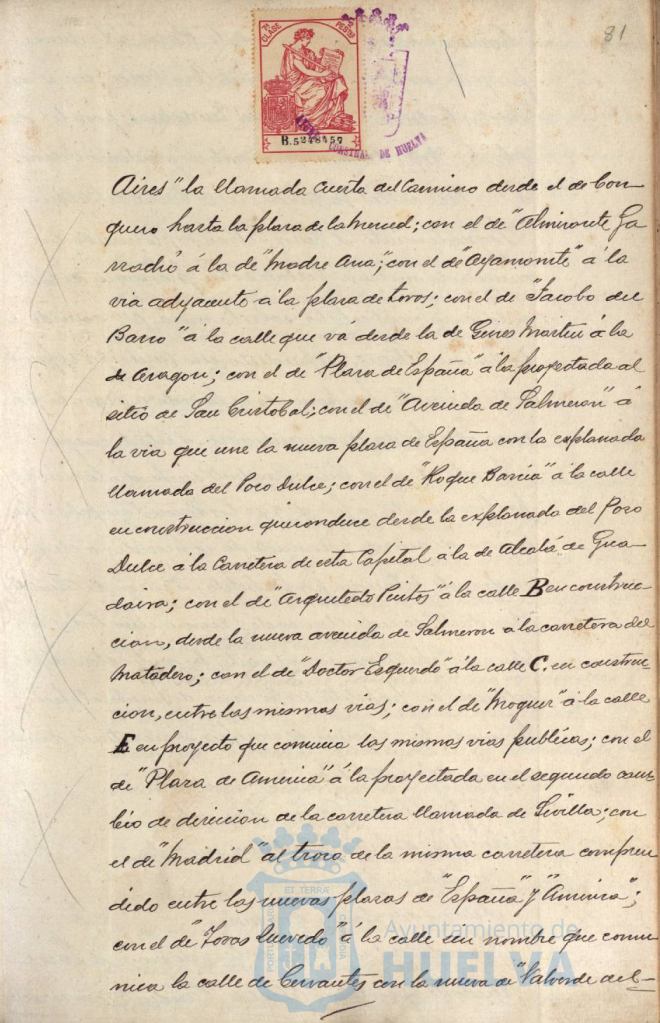 81
7ª CLASE 2 PESTAS
B.5248457
CONSTNAL. DE HUELVA
Aires" la llamada cuesta del Camino desde el de Con-
quero hasta la plaza de la Merced; con el de "Almirante Ga-
rrocho" á la de "Madre Ana"; con el de "Ayamonte" á la
via adyacente á la plaza de toros; con el de "Jacobo del
Barco" á la calle que vá desde la de Gines Martin á la
de Aragon; con el de "Plaza de España" á la proyectada al
sitio de San Cristobal; con el de "Avenida de Salmeron" á
la via que une la nueva plaza de España con la explanada
llamada del Pozo Dulce; con el de "Roque Barcia" á la calle
en construccion que conduce desde la explanada del Pozo
Dulce á la Carretera de esta Capital á la de Alcalá de Gua-
daira; con el de "Arquitecto Pintos" á la calle B en construc-
cion, desde la nueva avenida de Salmeron a la carretera del
Matadero; con el de "Doctor Esquerdo" á la calle C. en construc-
cion, entre las mismas vias; con el de "Moguer" á la calle
E en proyecto que comunica las mismas vias publicas; con el
de "Plaza de America" á la proyectada en el segundo cam-
bio de direccion de la carretera llamada de Sevilla; con
el de "Madrid" al trozo de la misma carretera compren-
dido entre las nuevas plazas de "España" y "America";
con el de "Tovar Quevedo" á la calle sin nombre que comu-
nica la calle de Cervantes con la nueva de "Valverde del
PORTUS MARIS ET TERRAE CUSTODIA
Ayuntamiento de
HUELVA